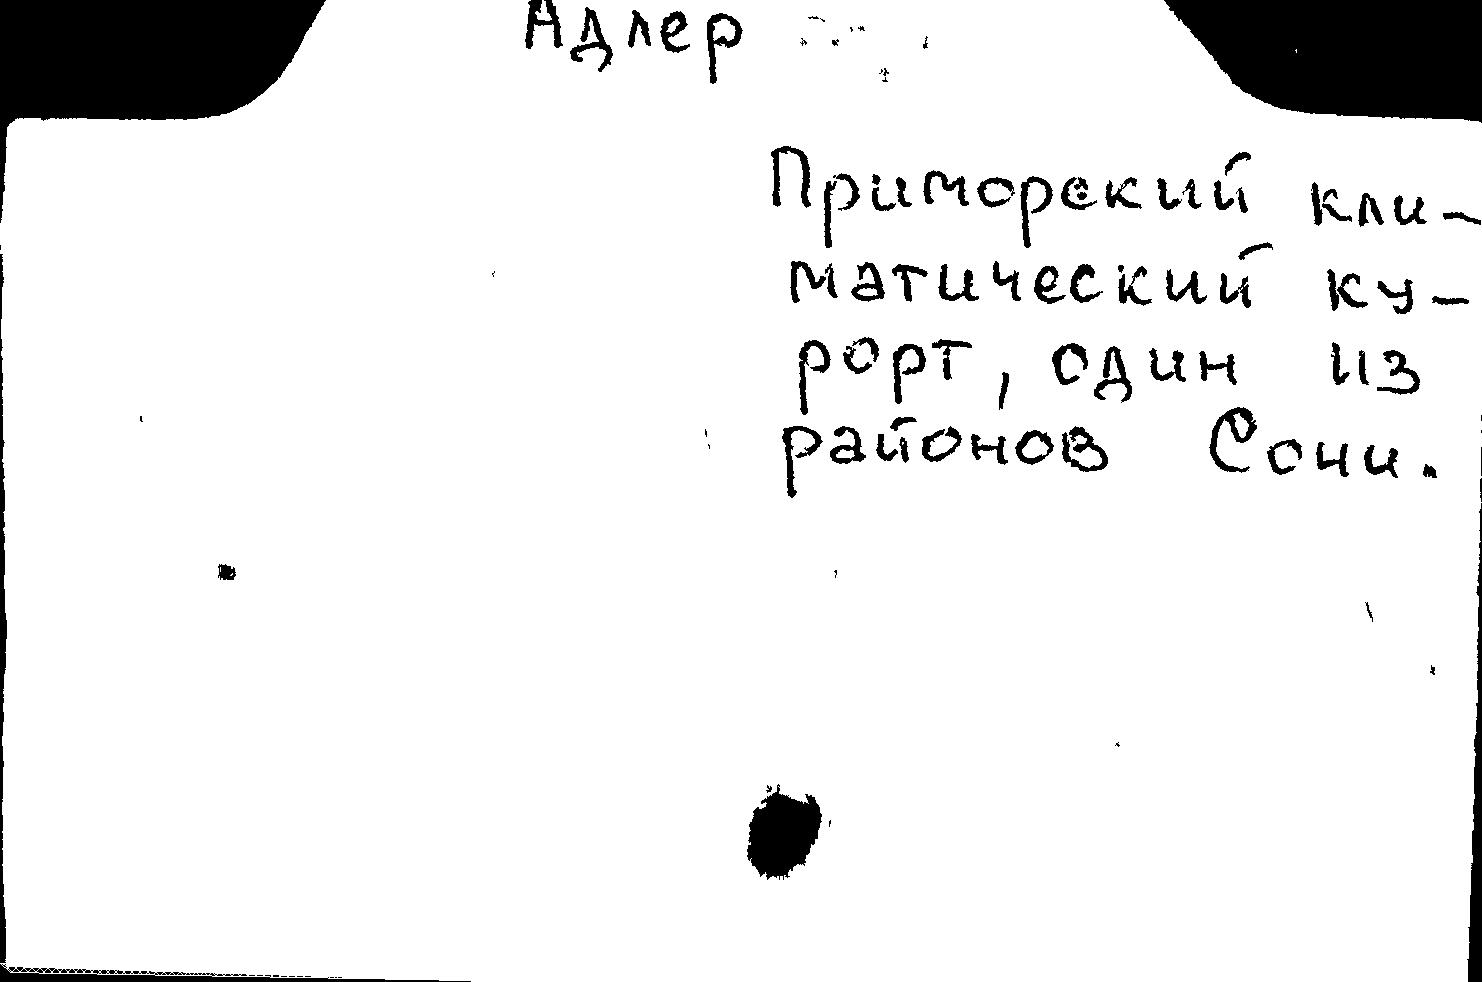 Адлер
Приморский кли-
матический ку-
рорт, один из
районов Сочи.